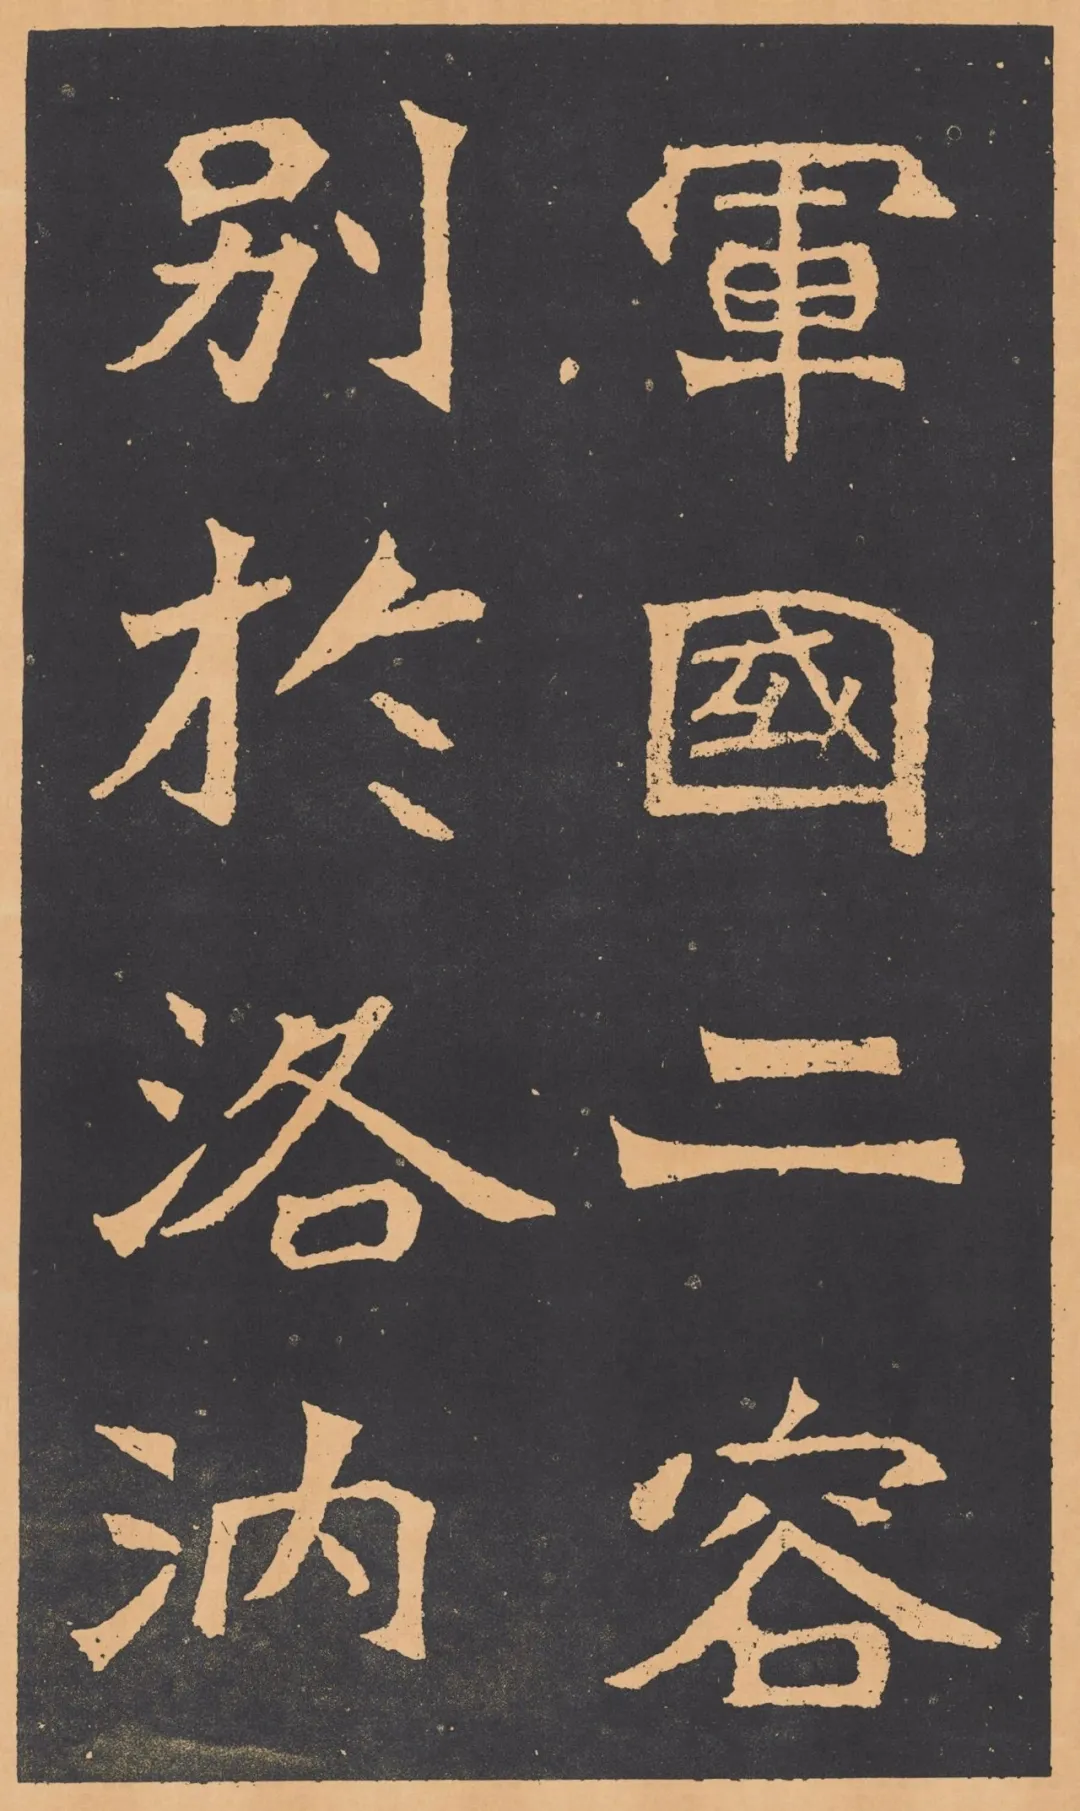 軍國二容
別於洛汭